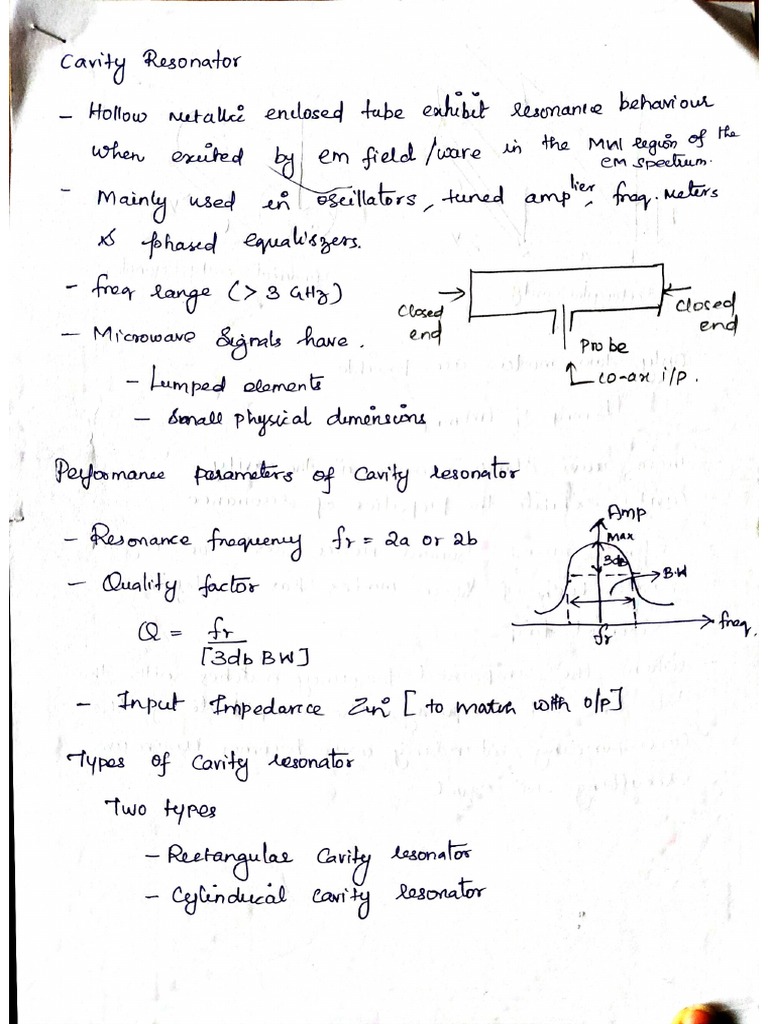 Cavity Resonator
- Hollow metallic enclosed tube exhibit resonance behaviour
when excited by em field/wave in the MW region of the
EM spectrum.
- Mainly used in oscillators, tuned amplier, freq. meters
& phased equaliszers.
- freq range (> 3 GHz)
Closed
end
Closed
end
Probe
co-ax i/p.
- Microwave signals have.
- Lumped elements
- Small physical dimensions
Performance parameters of cavity resonator
- Resonance frequency fr = 2a or 2b
- Quality factor
Q = fr
[3db BW]
Amp
Max
3db
B.W
freq.
fr
- Input Impedance Zin [to match with o/p]
Types of cavity resonator
Two types
- Rectangular cavity resonator
- Cylindrical cavity resonator